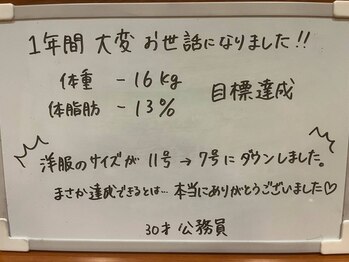 1年間 大変 お世話になりました!!
体重 -16kg
体脂肪 -13%
目標達成
洋服のサイズが 11号→7号にダウンしました。
まさか達成できるとは… 本当にありがとうございました♡
30才 公務員